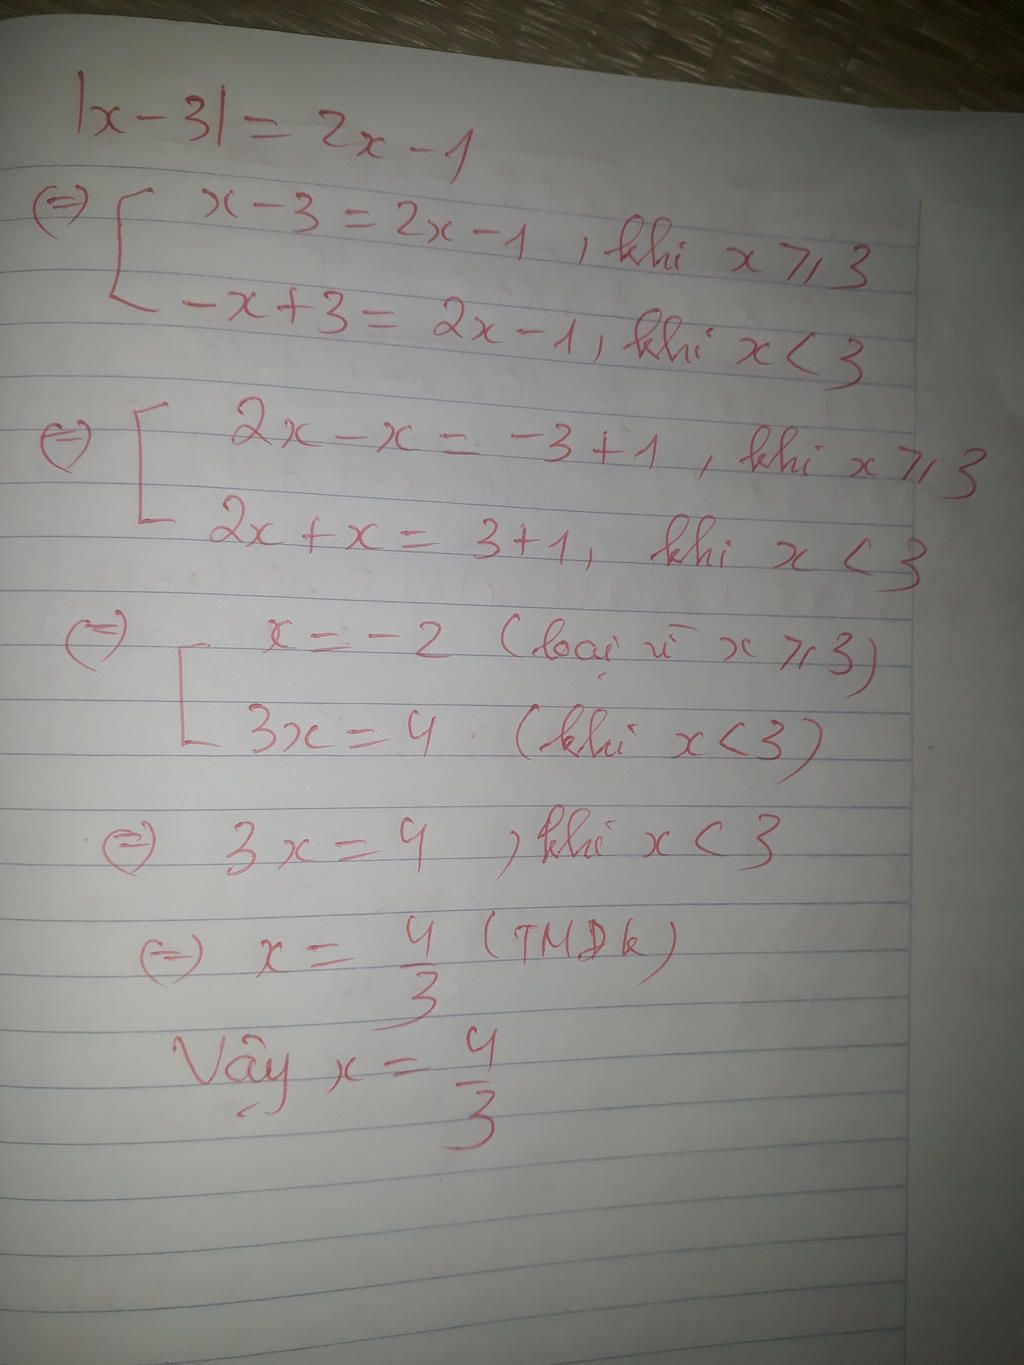 |x - 3| = 2x - 1
(=) [ x - 3 = 2x - 1 , khi x ⩾ 3
-x + 3 = 2x - 1, khi x < 3
(=) [ 2x - x = -3 + 1 , khi x ⩾ 3
2x + x = 3 + 1, khi x < 3
(=) [ x = -2 (loại vì x ⩾ 3)
3x = 4 (khi x < 3)
(=) 3x = 4 , khi x < 3
(=) x = 4/3 (TMDK)
Vậy x = 4/3